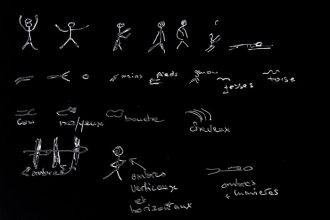 mains pieds genou fesses torse
cou nez/yeux bouche cheveux
ombres
ombres
verticaux
et
horizontaux
ombres
+ lumières